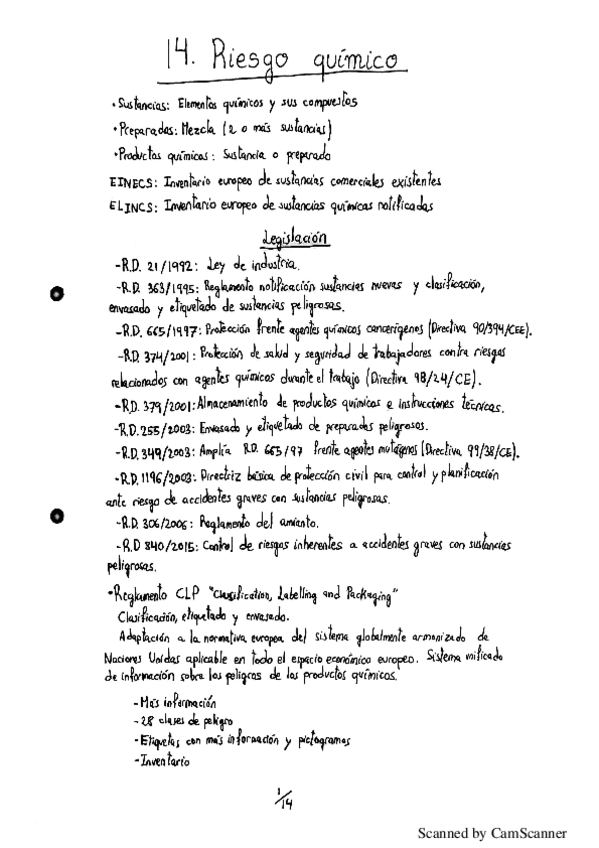 14. Riesgo químico
• Sustancias: Elementos químicos y sus compuestos
• Preparados: Mezcla (2 o más sustancias)
• Productos químicos: Sustancia o preparado
EINECS: Inventario europeo de sustancias comerciales existentes
ELINCS: Inventario europeo de sustancias químicas notificadas
Legislación
- R.D. 21/1992: Ley de industria.
- R.D. 363/1995: Reglamento notificación sustancias nuevas y clasificación,
envasado y etiquetado de sustancias peligrosas.
- R.D. 665/1997: Protección frente agentes químicos cancerígenos (Directiva 90/394/CEE).
- R.D. 374/2001: Protección de salud y seguridad de trabajadores contra riesgos
relacionados con agentes químicos durante el trabajo (Directiva 98/24/CE).
- R.D. 379/2001: Almacenamiento de productos químicos e instrucciones técnicas.
- R.D. 255/2003: Envasado y etiquetado de preparados peligrosos.
- R.D. 349/2003: Amplía R.D. 665/97 frente agentes mutágenos (Directiva 99/38/CE).
- R.D. 1196/2003: Directriz básica de protección civil para control y planificación
ante riesgo de accidentes graves con sustancias peligrosas.
- R.D. 306/2006: Reglamento del amianto.
- R.D 840/2015: Control de riesgos inherentes a accidentes graves con sustancias
peligrosas.
• Reglamento CLP "Classification, Labelling and Packaging"
Clasificación, etiquetado y envasado.
Adaptación a la normativa europea del sistema globalmente armonizado de
Naciones Unidas aplicable en todo el espacio económico europeo. Sistema unificado
de información sobre los peligros de los productos químicos.
- Más información
- 28 clases de peligro
- Etiquetas con más información y pictogramas
- Inventario
1/14
Scanned by CamScanner